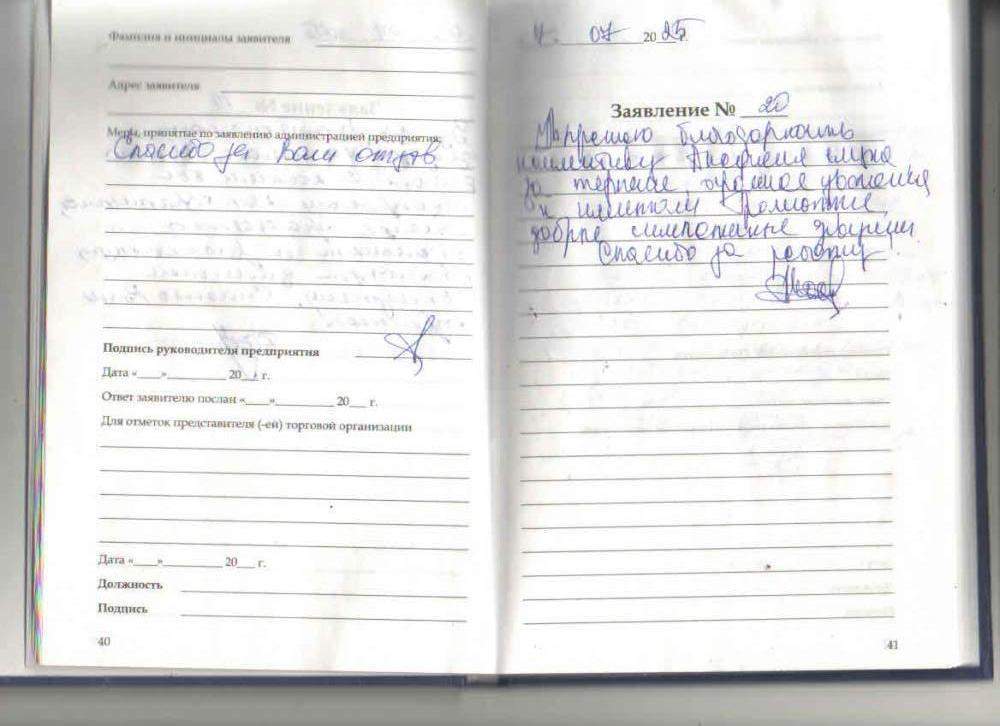 Фамилия и инициалы заявителя
Адрес заявителя
Меры, принятые по заявлению администрацией предприятия:
Спасибо за Ваш отзыв.
Подпись руководителя предприятия
Дата «____»__________ 20___ г.
Ответ заявителю послан «____»__________ 20___ г.
Для отметок представителя (-ей) торговой организации
Дата «____»__________ 20___ г.
Должность
Подпись
40
4. 07 2025
Заявление № 20
благодарность
коллективу
за терпение, уважение
к
добрые
Спасибо за
41